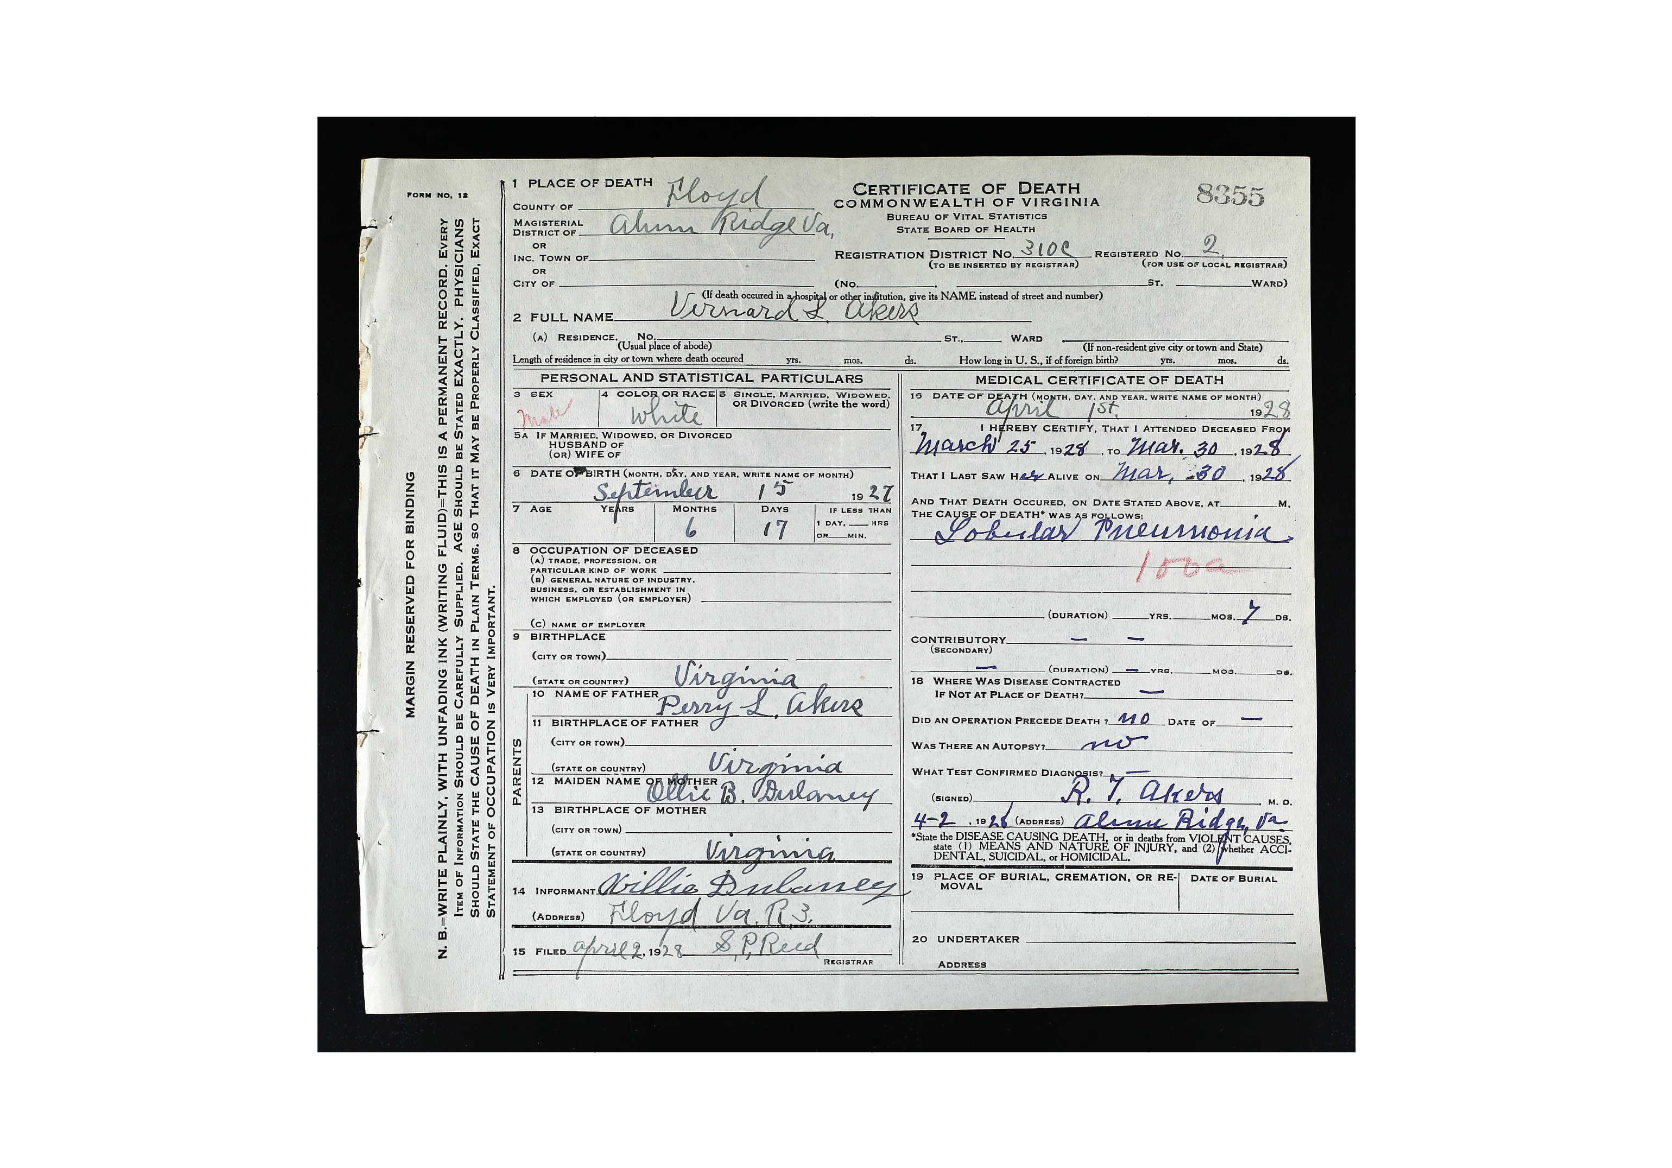 FORM NO. 12
MARGIN RESERVED FOR BINDING
N. B.—WRITE PLAINLY, WITH UNFADING INK (WRITING FLUID)—THIS IS A PERMANENT RECORD. EVERY
ITEM OF INFORMATION SHOULD BE CAREFULLY SUPPLIED. AGE SHOULD BE STATED EXACTLY. PHYSICIANS
SHOULD STATE THE CAUSE OF DEATH IN PLAIN TERMS, SO THAT IT MAY BE PROPERLY CLASSIFIED. EXACT
STATEMENT OF OCCUPATION IS VERY IMPORTANT.
1 PLACE OF DEATH
COUNTY OF Floyd
MAGISTERIAL DISTRICT OF Alum Ridge Va,
OR
INC. TOWN OF
OR
CITY OF
CERTIFICATE OF DEATH
COMMONWEALTH OF VIRGINIA
BUREAU OF VITAL STATISTICS
STATE BOARD OF HEALTH
8355
REGISTRATION DISTRICT NO. 310C REGISTERED NO. 2
(TO BE INSERTED BY REGISTRAR) (FOR USE OF LOCAL REGISTRAR)
(NO. ST. WARD)
(If death occured in a hospital or other institution, give its NAME instead of street and number)
2 FULL NAME Vernard L. Akers
(A) RESIDENCE. NO. ST., WARD
(Usual place of abode) (If non-resident give city or town and State)
Length of residence in city or town where death occured yrs. mos. ds. How long in U. S., if of foreign birth? yrs. mos. ds.
PERSONAL AND STATISTICAL PARTICULARS
3 SEX Male
4 COLOR OR RACE White
5 SINGLE, MARRIED, WIDOWED, OR DIVORCED (write the word)
5A IF MARRIED, WIDOWED, OR DIVORCED
HUSBAND OF
(OR) WIFE OF
6 DATE OF BIRTH (MONTH, DAY, AND YEAR, WRITE NAME OF MONTH)
September 15 1927
7 AGE YEARS MONTHS DAYS IF LESS THAN
6 17 1 DAY, HRS
OR MIN.
8 OCCUPATION OF DECEASED
(A) TRADE, PROFESSION, OR
PARTICULAR KIND OF WORK
(B) GENERAL NATURE OF INDUSTRY,
BUSINESS, OR ESTABLISHMENT IN
WHICH EMPLOYED (OR EMPLOYER)
(C) NAME OF EMPLOYER
9 BIRTHPLACE
(CITY OR TOWN)
(STATE OR COUNTRY) Virginia
PARENTS
10 NAME OF FATHER Perry L. Akers
11 BIRTHPLACE OF FATHER
(CITY OR TOWN)
(STATE OR COUNTRY) Virginia
12 MAIDEN NAME OF MOTHER Ollie B. Dulaney
13 BIRTHPLACE OF MOTHER
(CITY OR TOWN)
(STATE OR COUNTRY) Virginia
14 INFORMANT Willie Dulaney
(ADDRESS) Floyd Va. R 3.
15 FILED April 2, 1928 S. P. Reed
REGISTRAR
MEDICAL CERTIFICATE OF DEATH
16 DATE OF DEATH (MONTH, DAY, AND YEAR, WRITE NAME OF MONTH)
April 1st. 1928
17 I HEREBY CERTIFY, THAT I ATTENDED DECEASED FROM
March 25, 1928, TO Mar. 30, 1928
THAT I LAST SAW HER ALIVE ON Mar. 30, 1928
AND THAT DEATH OCCURED, ON DATE STATED ABOVE, AT M.
THE CAUSE OF DEATH* WAS AS FOLLOWS:
Lobular Pneumonia.
100a
(DURATION) YRS. MOS. 7 DS.
CONTRIBUTORY — —
(SECONDARY)
— (DURATION) — YRS. MOS. DS.
18 WHERE WAS DISEASE CONTRACTED
IF NOT AT PLACE OF DEATH? —
DID AN OPERATION PRECEDE DEATH? no DATE OF —
WAS THERE AN AUTOPSY? no
WHAT TEST CONFIRMED DIAGNOSIS? —
(SIGNED) R. T. Akers M. D.
4-2, 1928 (ADDRESS) Alum Ridge, Va
*State the DISEASE CAUSING DEATH, or in deaths from VIOLENT CAUSES,
state (1) MEANS AND NATURE OF INJURY, and (2) whether ACCI-
DENTAL, SUICIDAL, or HOMICIDAL.
19 PLACE OF BURIAL, CREMATION, OR RE-
MOVAL
DATE OF BURIAL
20 UNDERTAKER
ADDRESS